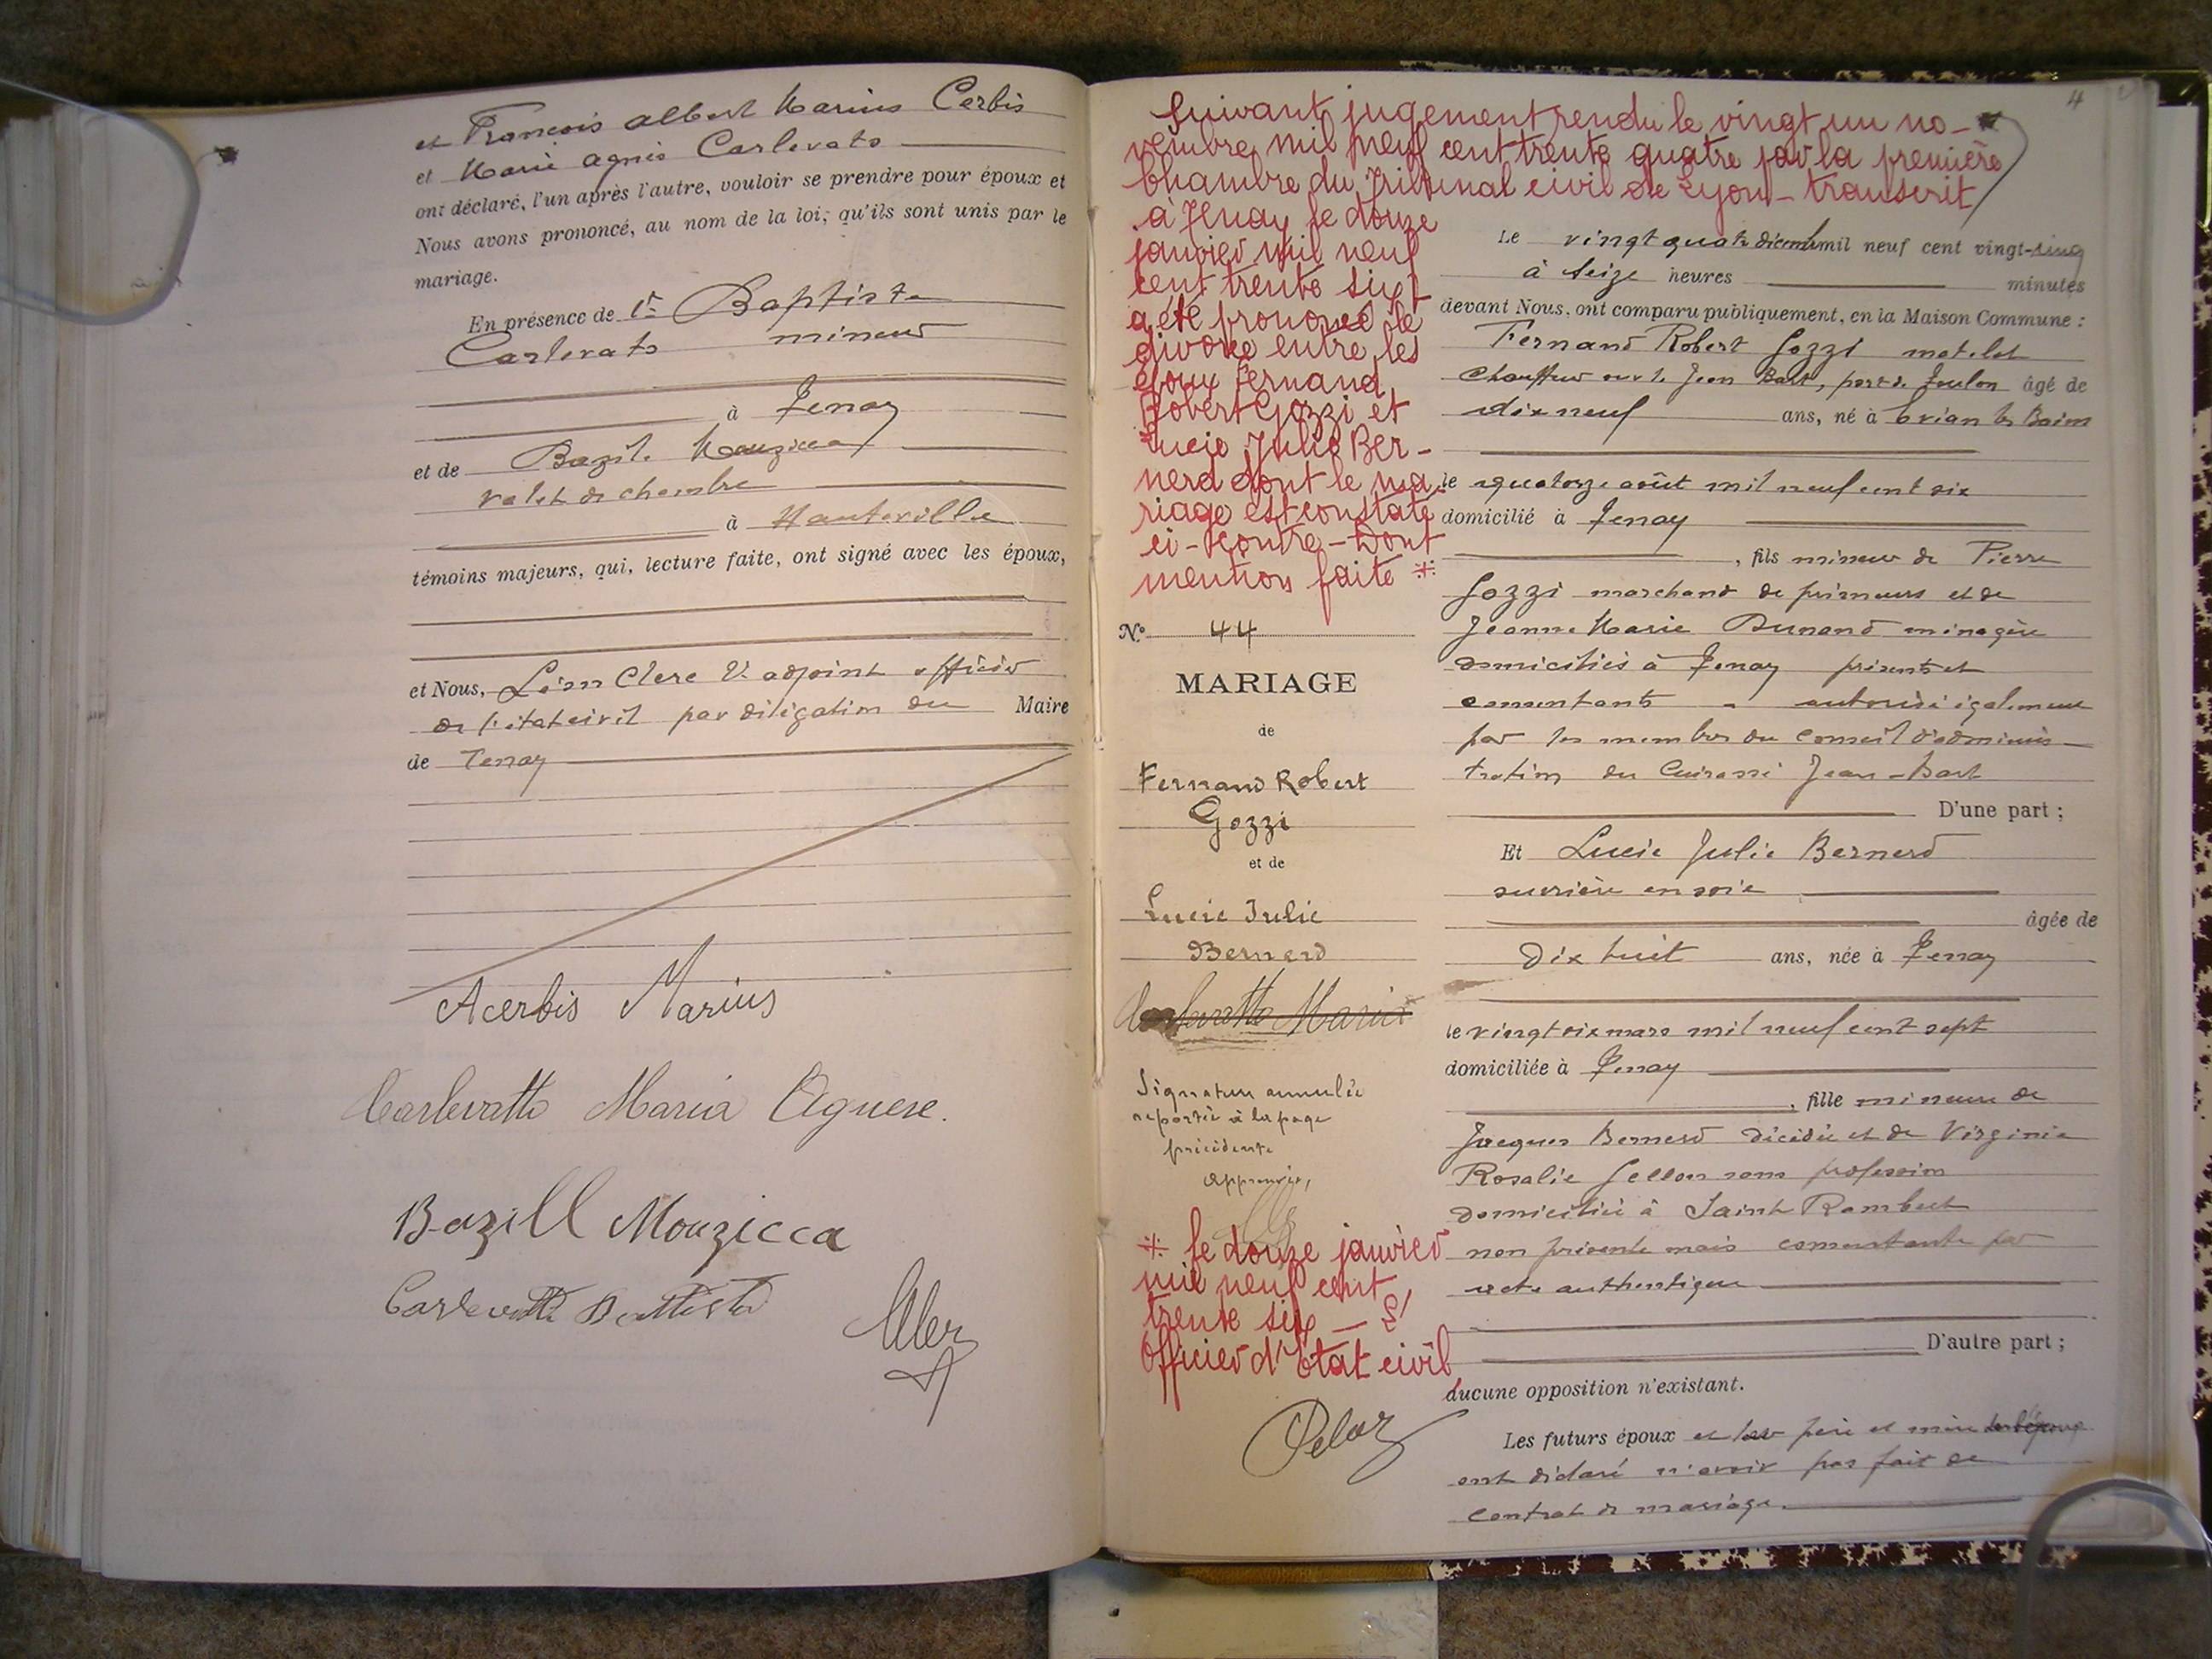 et François Albert Marius Cerbis
et Marie Agnès Carlevato
ont déclaré, l'un après l'autre, vouloir se prendre pour époux et
Nous avons prononcé, au nom de la loi, qu'ils sont unis par le
mariage.
En présence de 1° Baptiste
Carlevato mineur
à Tenay
et de Bazile Mouzicca
valet de chambre
à Hauteville
témoins majeurs, qui, lecture faite, ont signé avec les époux,
et Nous, Léon Clerc 2e adjoint officier
de l'état civil par délégation du Maire
de Tenay
Acerbis Marius
Carlevatto Maria Agnese.
Bazill Mouzicca
Carlevatto Battista
4
Suivant jugement rendu le vingt un no-
vembre mil neuf cent trente quatre par la première
Chambre du Tribunal civil de Lyon - transcrit
à Tenay le douze
janvier mil neuf
cent trente six
a été prononcé le
divorce entre les
époux Fernand
Robert Gozzi et
Lucie Julie Ber-
nerd dont le ma-
riage est constaté
ci-contre - Dont
mention faite *
N° 44
MARIAGE
de
Fernand Robert
Gozzi
et de
Lucie Julie
Bernerd
Carlevatto Maria
Signature annulée
reportée à la page
précédente
Approuvé,
* le douze janvier
mil neuf cent
trente six
Officier d'Etat civil
Pelaz
Le vingt quatre décembre mil neuf cent vingt-cinq
à seize heures minutes
devant Nous, ont comparu publiquement, en la Maison Commune :
Fernand Robert Gozzi matelot
chauffeur sur le Jean Bart, port de Toulon âgé de
dix neuf ans, né à Evian les Bains
le quatorze août mil neuf cent six
domicilié à Tenay
, fils mineur de Pierre
Gozzi marchand de primeurs et de
Jeanne Marie Dunand ménagère
domiciliés à Tenay présents et
consentants - autorisé également
par les membres du Conseil d'adminis-
tration du Cuirassé Jean-Bart
D'une part ;
Et Lucie Julie Bernerd
ouvrière en soie
âgée de
dix huit ans, née à Tenay
le vingt six mars mil neuf cent sept
domiciliée à Tenay
, fille mineure de
Jacques Bernerd décédé et de Virginie
Rosalie sans profession
domiciliée à Saint Rambert
non présente mais consentante par
acte authentique
D'autre part ;
Aucune opposition n'existant.
Les futurs époux et les père et mère de l'époux
ont déclaré n'avoir pas fait de
contrat de mariage.